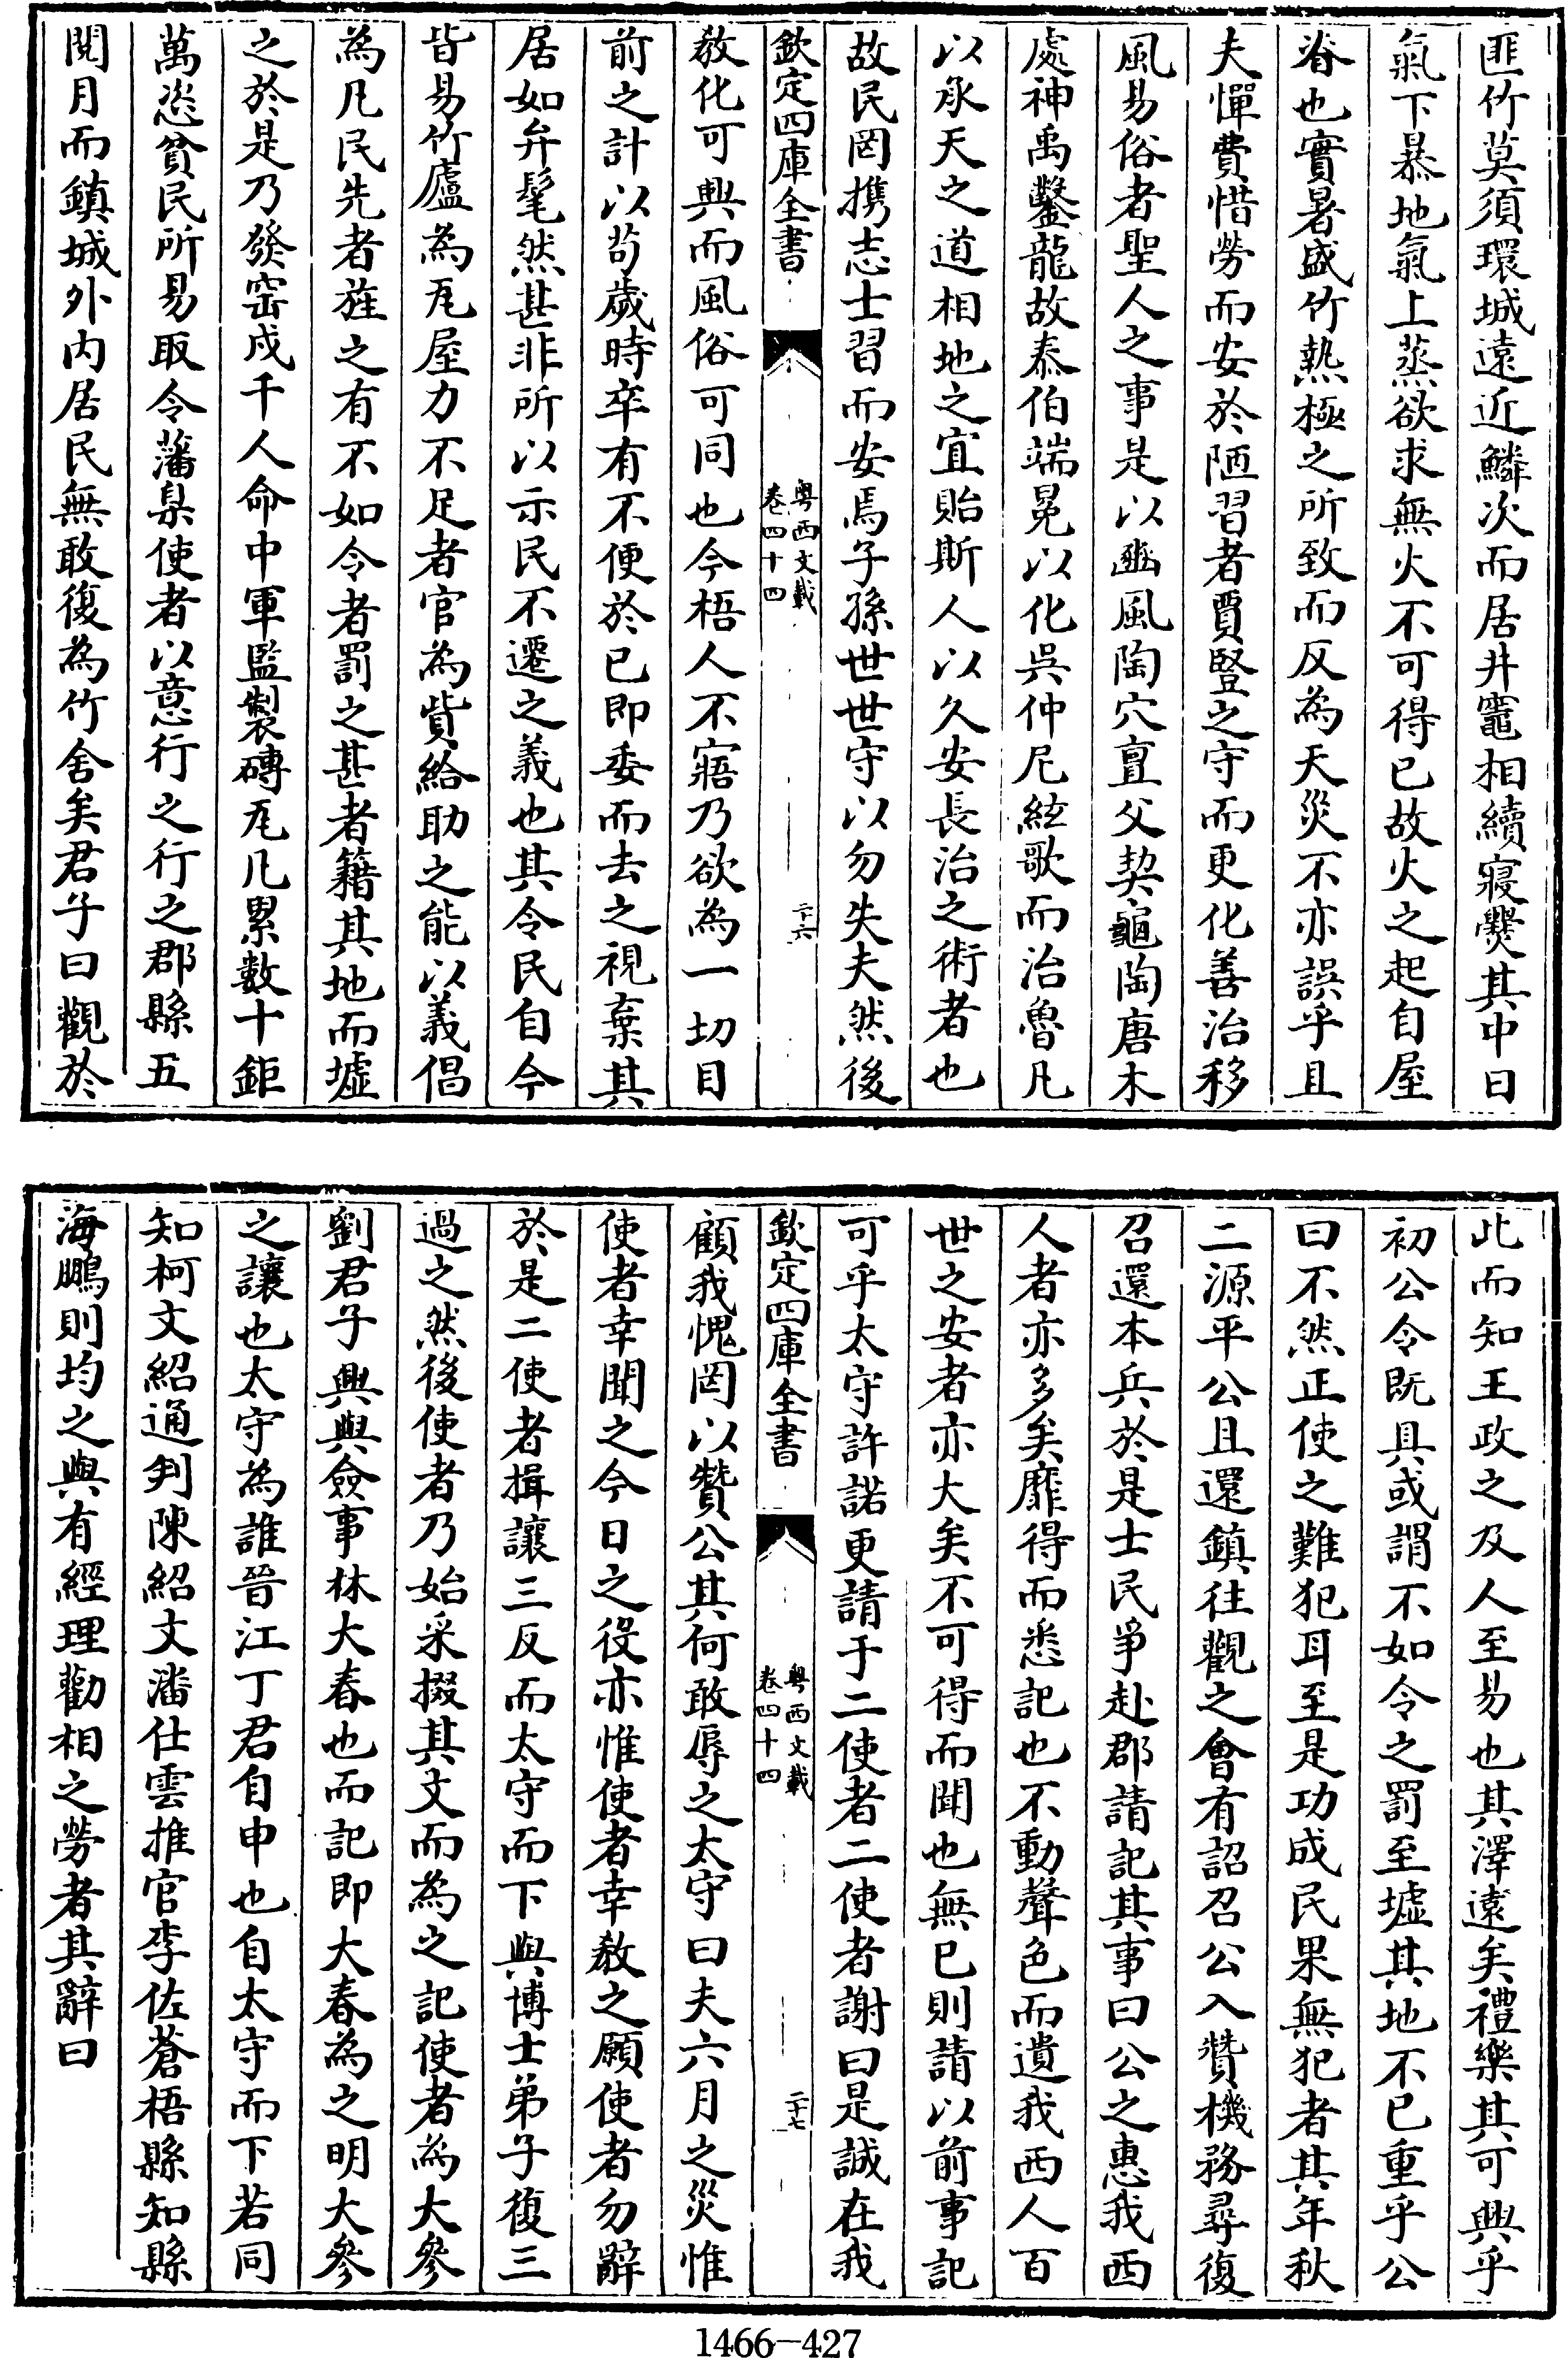 匪竹莫須環城遠近鱗次而居井竈相續寢爨其中日
氣下暴地氣上蒸欲求無火不可得已故火之起自屋
脊也實暑盛竹熱極之所致而反為天災不亦誤乎且
夫憚費惜勞而安於陋習者賈豎之守而更化善治移
風易俗者聖人之事是以豳風陶穴亶父契龜陶唐木
處神禹鑿龍故泰伯端冕以化吳仲尼絃歌而治魯凡
以承天之道相地之宜貽斯人以久安長治之術者也
故民罔攜志士習而安焉子孫世世守以勿失夫然後
欽定四庫全書
粤西文載
卷四十四
二十六
教化可興而風俗可同也今梧人不寤乃欲為一切目
前之計以茍歲時卒有不便於己即委而去之視棄其
居如弁髦然甚非所以示民不遷之義也其令民自今
皆易竹廬為瓦屋力不足者官為貲給助之能以義倡
為凡民先者旌之有不如令者罰之甚者籍其地而墟
之於是乃發窑戍千人命中軍監製磚瓦凡累數十鉅
萬恣貧民所易取令藩臬使者以意行之行之郡縣五
閱月而鎮城外内居民無敢復為竹舍矣君子曰觀於
此而知王政之及人至易也其澤遠矣禮樂其可興乎
初公令既具或謂不如令之罰至墟其地不已重乎公
曰不然正使之難犯耳至是功成民果無犯者其年秋
二源平公且還鎮往觀之會有詔召公入贊機務尋復
召還本兵於是士民爭赴郡請記其事曰公之惠我西
人者亦多矣靡得而悉記也不動聲色而遺我西人百
世之安者亦大矣不可得而聞也無已則請以前事記
可乎太守許諾更請于二使者二使者謝曰是誠在我
欽定四庫全書
粤西文載
卷四十四
二十七
顧我愧罔以贊公其何敢辱之太守曰夫六月之災惟
使者幸聞之今日之役亦惟使者幸教之願使者勿辭
於是二使者揖讓三反而太守而下與博士弟子復三
過之然後使者乃始采掇其文而為之記使者為大參
劉君子興與僉事林大春也而記即大春為之明大參
之讓也太守為誰晉江丁君自申也自太守而下若同
知柯文紹通判陳紹文潘仕雲推官李佐蒼梧縣知縣
海鵬則均之與有經理勸相之勞者其辭曰
1466-427